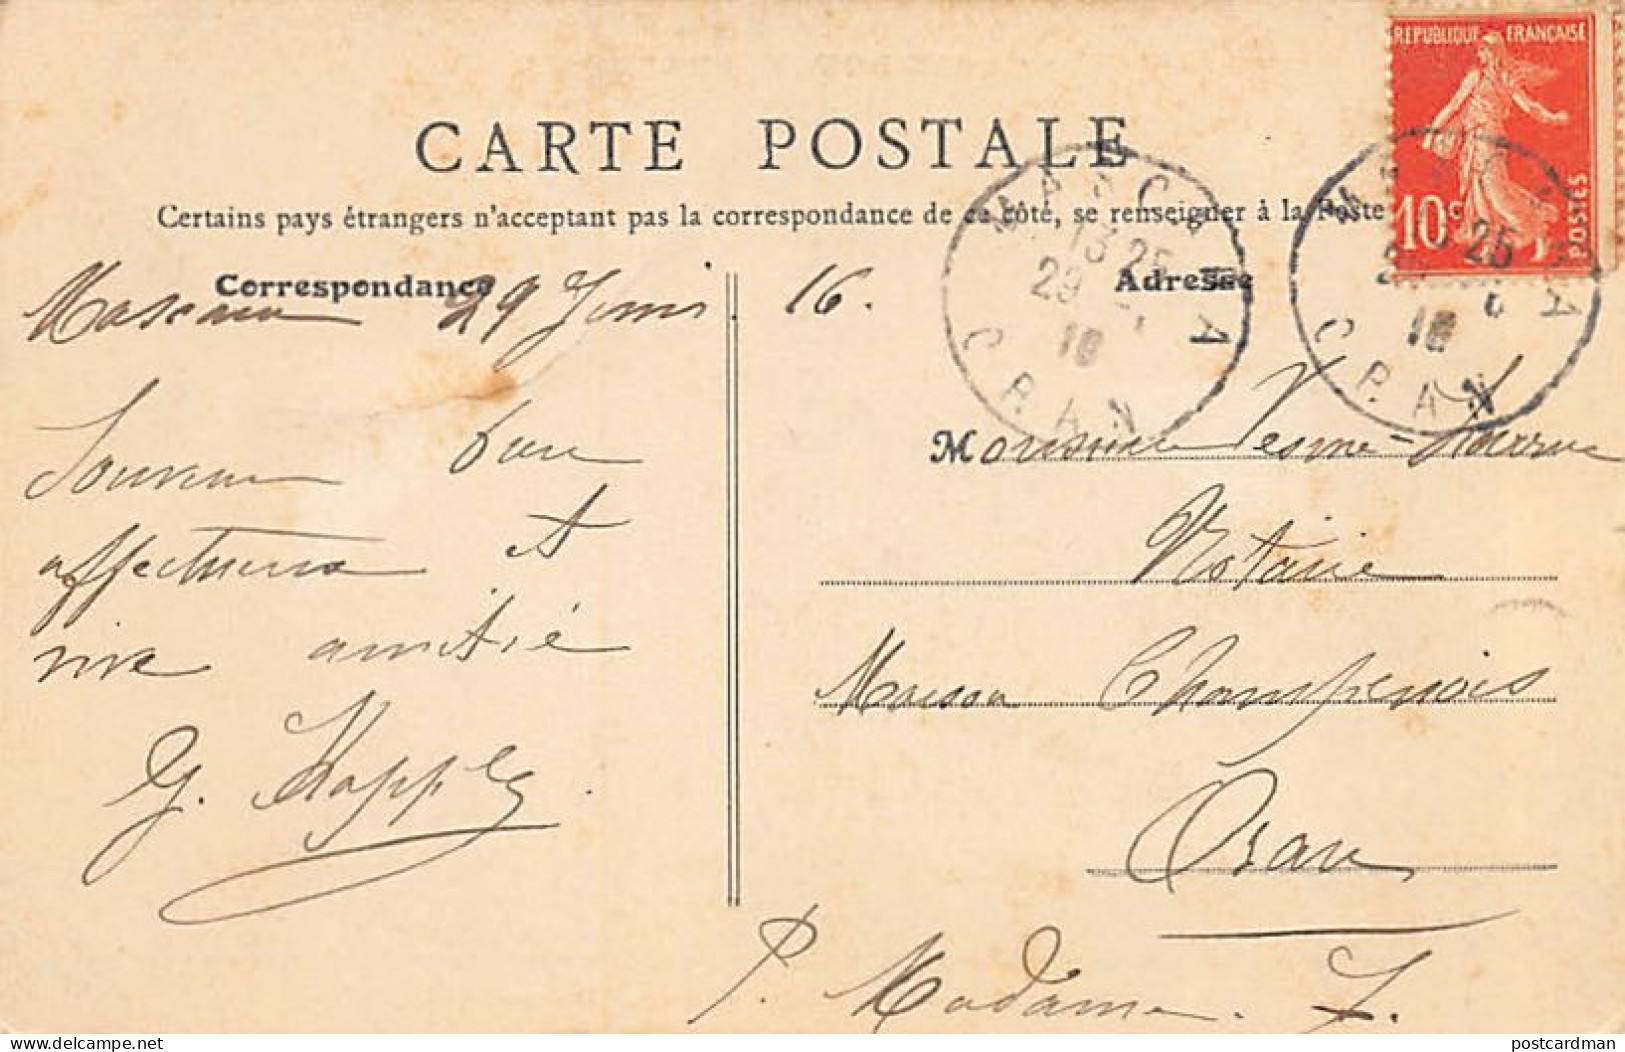 REPUBLIQUE FRANÇAISE
10c
POSTES
CARTE POSTALE
Certains pays étrangers n'acceptent pas la correspondance de ce côté, se renseigner à la Poste
Correspondance
Adresse
Mascara 29 Juin 16.
MASCARA
13 25
29 -
16
ORAN
MASCARA
25
16
ORAN
Souvenir bien
affectueux et
vive amitié
G.
Monsieur Vesine-Larrue
Notaire
Maison Champenois
Oran
P. Madame. J.
delcampe.net
postcardman